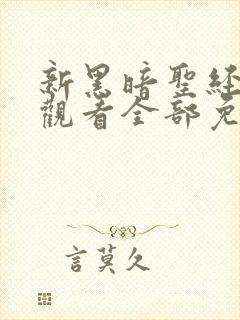 新黑暗聖经
觀看全部免
言莫久